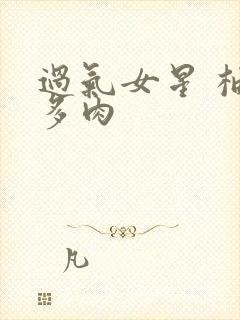 過氣女星 柚
多肉
凡